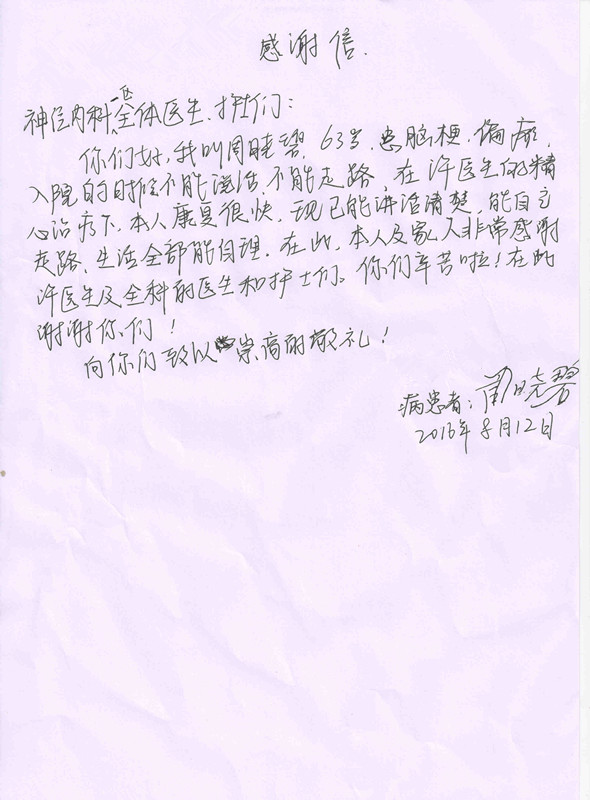 感谢信.
神经内科一区全体医生、护士们:
你们好,我叫周晓碧,63岁,患脑梗,偏瘫,
入院的时候不能说话,不能走路,在许医生的精
心治疗下,本人康复很快,现已能讲话清楚,能自主
走路、生活全部能自理.在此,本人及家人非常感谢
许医生及全科的医生和护士们。你们辛苦啦!在此
谢谢你们!
向你们致以崇高的敬礼!
病患者:周晓碧
2016年8月12日